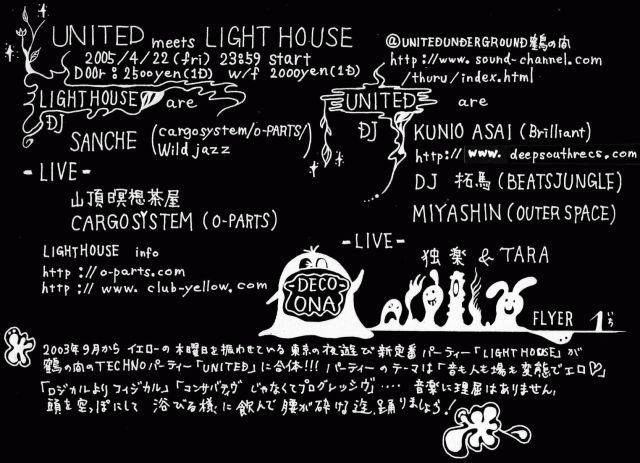 UNITED meets LIGHT HOUSE
2005/4/22(fri) 23:59 start
DOOR: 2500yen(1D) w/f 2000yen(1D)
@UNITEDUNDERGROUND鶴の間
http://www.sound-channel.com
/thuru/index.html
LIGHTHOUSE are
DJ
SANCHE (cargosystem/O-PARTS/
Wild jazz
-LIVE-
山頂瞑想茶屋
CARGOSYSTEM (O-PARTS)
LIGHTHOUSE info
http://o-parts.com
http://www.club-yellow.com
UNITED are
DJ
KUNIO ASAI (Brilliant)
http://www.deepsouthrecs.com
DJ 拓馬 (BEATSJUNGLE)
MIYASHIN (OUTER SPACE)
-LIVE-
独楽 & TARA
DECO
ONA
FLYER 1いち
2003年9月から イエローの木曜日を賑わせている東京の夜遊び新定番パーティー「LIGHT HOUSE」が
鶴の間のTECHNOパーティー「UNITED」に合体!!! パーティーのテーマは「音も人も場も変態でエロ♡」
「ロジカルよりフィジカル」「コンサバティヴじゃなくてプログレッシヴ」‥‥ 音楽に理屈はありません,
頭を空っぽにして 浴びる様に飲んで腰が砕ける迄、踊りましょう!